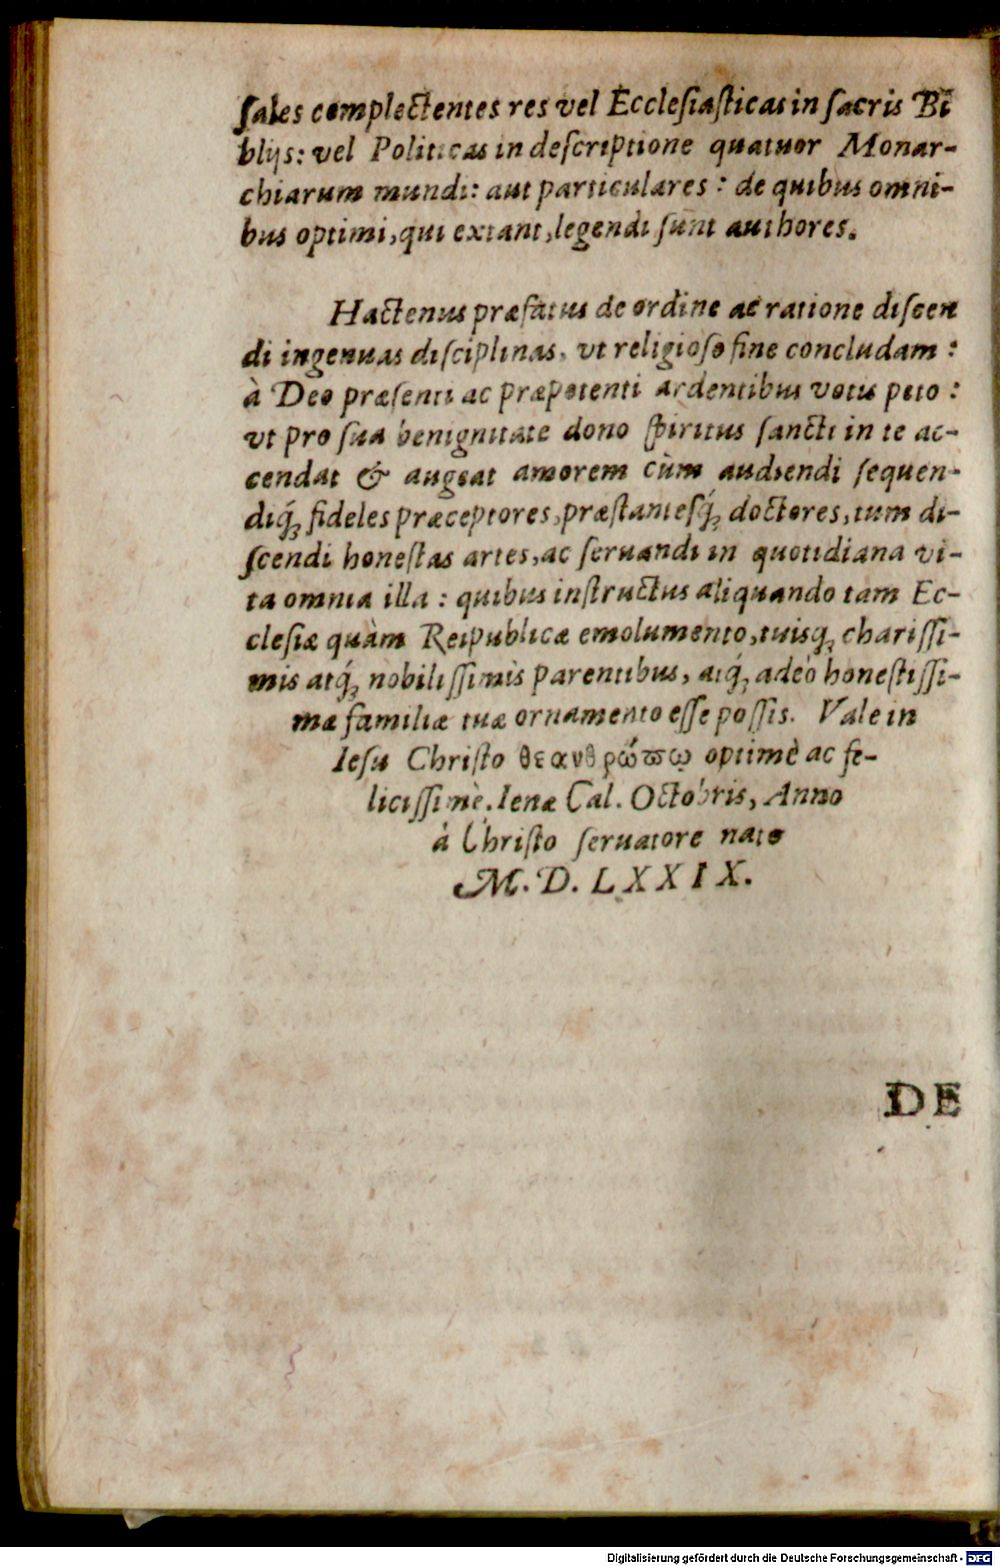 ſales complectentes res vel Eccleſiaſticas in ſacris Bi
blijs: vel Politicas in deſcriptione quatuor Monar-
chiarum mundi: aut particulares: de quibus omni-
bus optimi, qui extant, legendi ſunt authores.
Hactenus præfatus de ordine ac ratione diſcen
di ingenuas diſciplinas, vt religioſo fine concludam:
à Deo præſenti ac præpotenti ardentibus votis peto:
vt pro ſua benignitate dono ſpiritus ſancti in te ac-
cendat & augeat amorem cùm audiendi ſequen-
diq́; fideles præceptores, præſtanteſq́; doctores, tum di-
ſcendi honeſtas artes, ac ſeruandi in quotidiana vi-
ta omnia illa: quibus inſtructus aliquando tam Ec-
cleſiæ quàm Reipublicæ emolumento, tuisq; chariſſi-
mis atq́; nobiliſſimis parentibus, atq́; adeò honeſtiſſi-
mæ familiæ tuæ ornamento eſſe poſſis. Vale in
Ieſu Chriſto θεανθρώπῳ optimè ac fe-
liciſſimè. Ienæ Cal. Octobris, Anno
à Chriſto ſeruatore nato
M. D. LXXIX.
DE
Digitalisierung gefördert durch die Deutsche Forschungsgemeinschaft - DFG